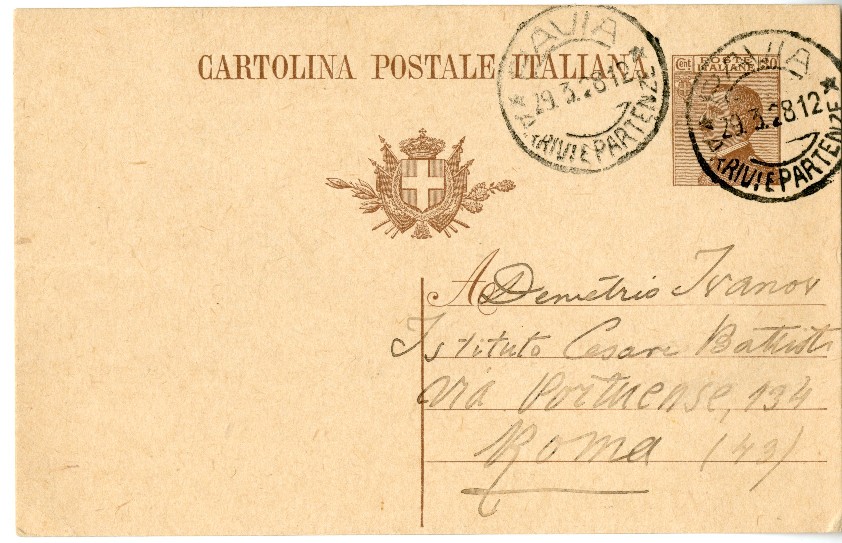 CARTOLINA POSTALE ITALIANA
PAVIA
29.3.28 12
ARRIVI E PARTENZE
Cent POSTE ITALIANE 30
PAVIA
29.3.28 12
ARRIVI E PARTENZE
A Demetrio Ivanov
Istituto Cesare Battisti
Via Portuense, 134
Roma (43)